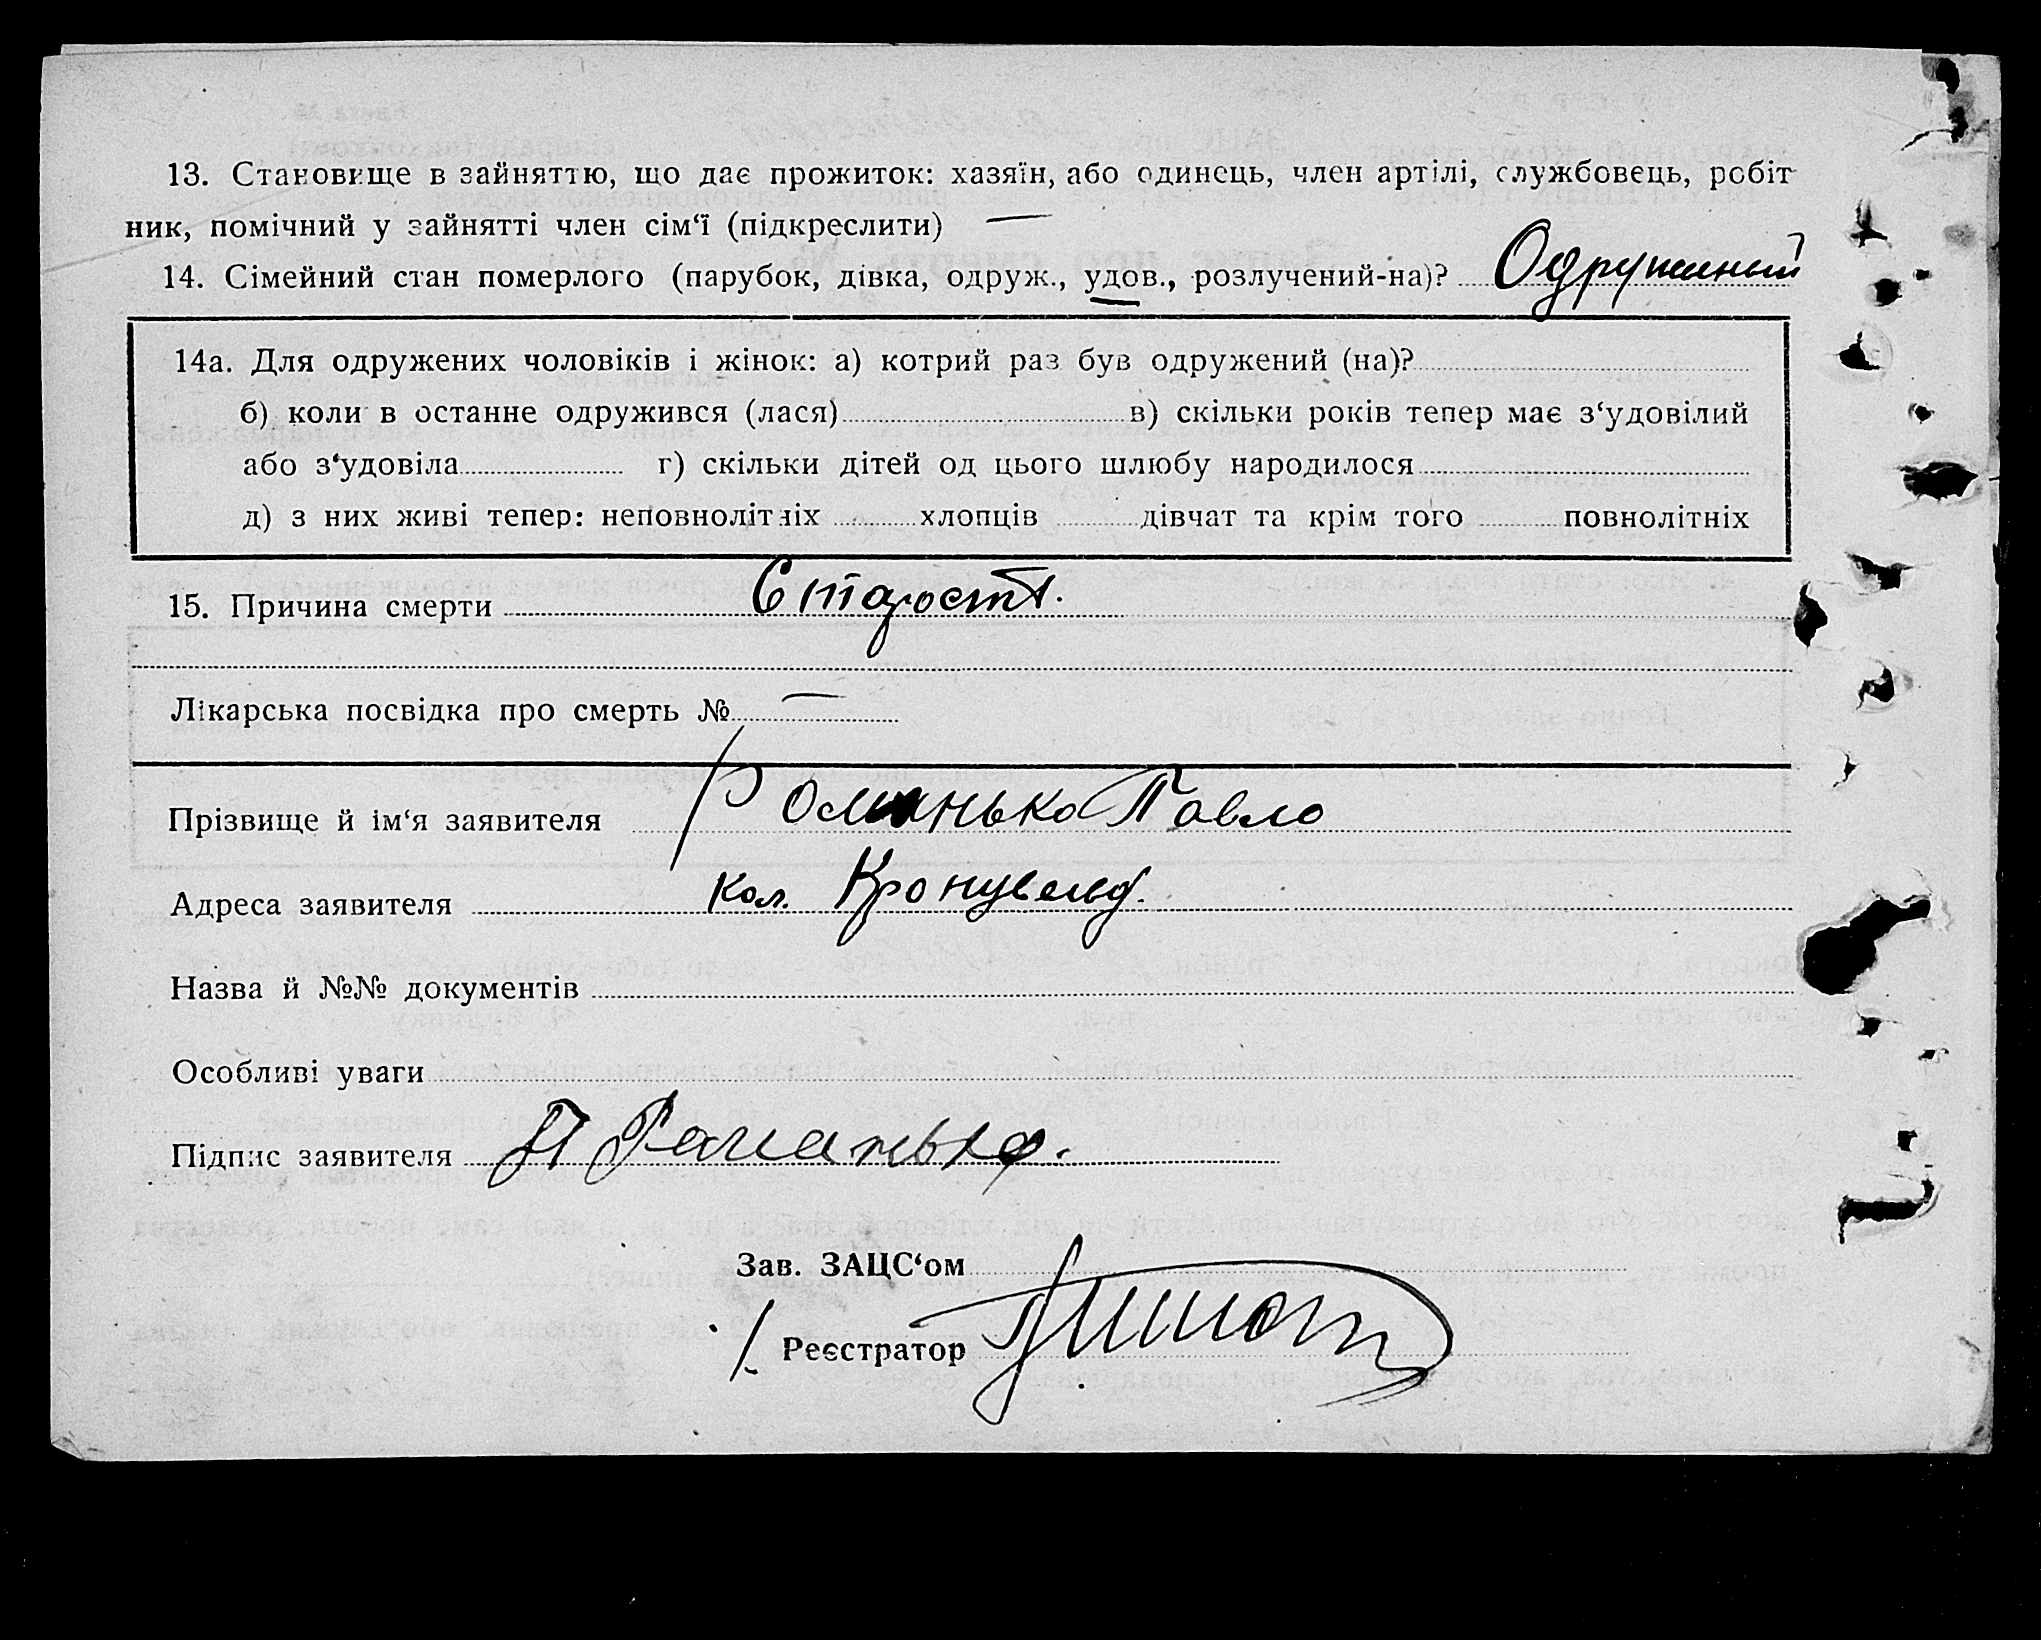 13. Становище в зайняттю, що дає прожиток: хазяїн, або одинець, член артілі, службовець, робіт
ник, помічний у зайнятті член сім‘ї (підкреслити) —
14. Сімейний стан померлого (парубок, дівка, одруж., удов., розлучений-на)? Одружиный
14а. Для одружених чоловіків і жінок: а) котрий раз був одружений (на)?
б) коли в останне одружився (лася) в) скільки років тепер має з‘удовілий
або з‘удовіла г) скільки дітей од цього шлюбу народилося
д) з них живі тепер: неповнолітніх хлопців дівчат та крім того повнолітніх
15. Причина смерти Старость.
Лікарська посвідка про смерть № —
Прізвище й ім‘я заявителя Романько Павло
Адреса заявителя Кол.
Назва й №№ документів
Особливі уваги
Підпис заявителя П Романько.
Зав. ЗАЦС‘ом
Реєстратор